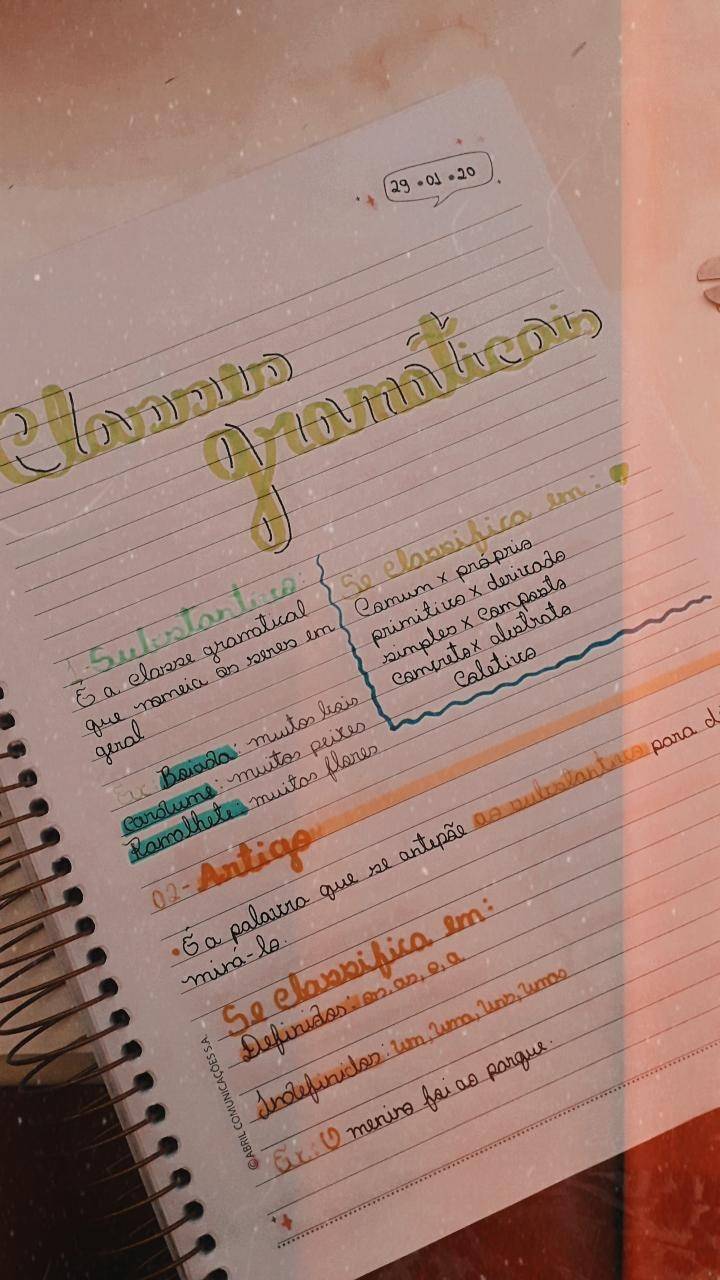 29.01.20
Classes
gramaticais
1. Substantivo:
É a classe gramatical
que nomeia os seres em
geral
Se classifica em:
Comum x próprio
primitivo x derivado
simples x composto
Concreto x abstrato
Coletivo
Ex: Boiada: muitos bois
Cardume: muitos peixes
Ramalhete: muitas flores
02- Artigo
• É a palavra que se antepõe ao substantivo para
miná-lo.
Se classifica em:
Definidos: os, as, o, a
Indefinidos: um, uma, uns, umas
Ex: O menino foi ao parque.
©ABRIL COMUNICAÇÕES S.A.